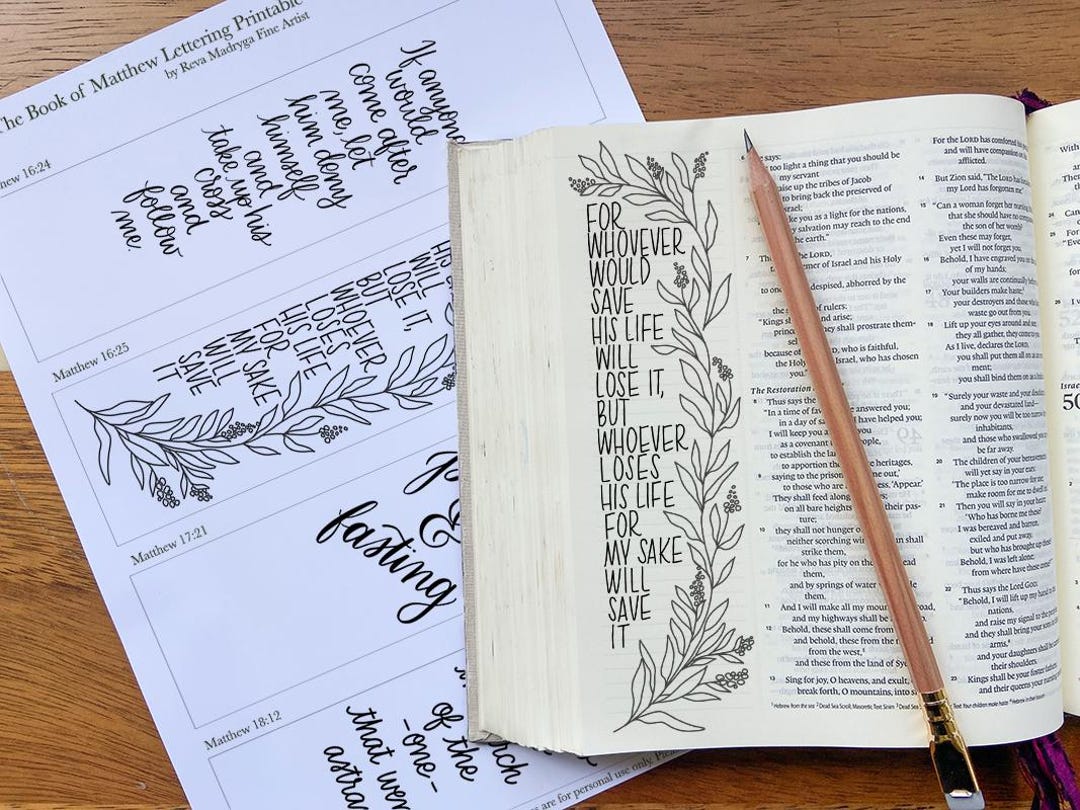 The Book of Matthew Lettering Printable
by Reva Madryga Fine Artist
16:24
If anyone
would
come after
me, let
him deny
himself
and
take up his
cross
and
follow
me.
Matthew 16:25
WILL
LOSE IT,
BUT
WHOEVER
LOSES
HIS LIFE
FOR
MY SAKE
WILL
SAVE
IT
Matthew 17:21
&
fasting
Matthew 18:12
of the
-one-
that
are for personal use only.
FOR
WHOVEVER
WOULD
SAVE
HIS LIFE
WILL
LOSE IT,
BUT
WHOEVER
LOSES
HIS LIFE
FOR
MY SAKE
WILL
SAVE
IT
says:
too light a thing that you should be
my servant
raise up the tribes of Jacob
to bring back the preserved of
you as a light for the nations,
salvation may reach to the end
the earth."
7 the LORD,
of Israel and his Holy
despised, abhorred by the
of rulers:
"Kings and arise;
they shall prostrate them-
because of who is faithful,
the Holy of Israel, who has chosen
you."
The Restoration
8 Thus says the
"In a time of favor answered you;
in a day of have helped you;
I will keep you
as a covenant people,
to establish the
to apportion the heritages,
9 saying to the out,'
to those who are 'Appear.'
They shall feed along
on all bare heights their pas-
ture;
10 they shall not hunger
neither scorching shall
strike them,
for he who has pity on
them,
and by springs of water
them.
11 And I will make all my road,
and my highways shall be
12 Behold, these shall come from
and behold, these from the
from the west,
and these from the land of
13 Sing for joy, O heavens, and exult,
break forth, O mountains, into
For the LORD has comforted his
and will have compassion on
afflicted.
14 But Zion said, "The LORD has
my Lord has forgotten me."
15 "Can a woman forget her nursing
that she should have no
the son of her womb?
Even these may forget,
yet I will not forget you.
16 Behold, I have engraved you
of my hands;
your walls are continually
17 Your builders make haste;
your destroyers and those who
waste go out from
18 Lift up your eyes around and
they all gather, they come
As I live, declares the LORD,
you shall put them all on
ment;
you shall bind them on
19 "Surely your waste and your
and your devastated land—
surely now you will be too
inhabitants,
and those who swallowed
be far away.
20 The children of your bereavement
will yet say in your ears:
'The place is too narrow for me;
make room for me to dwell
21 Then you will say in your heart:
'Who has borne me these?
I was bereaved and barren,
exiled and put away,
but who has brought up
Behold, I was left alone;
from where have these come?'"
22 Thus says the Lord GOD:
"Behold, I will lift up my hand
nations,
and raise my signal to the
and they shall bring your sons
arms,
and your daughters shall be
their shoulders.
23 Kings shall be your foster fathers,
and their queens your nursing